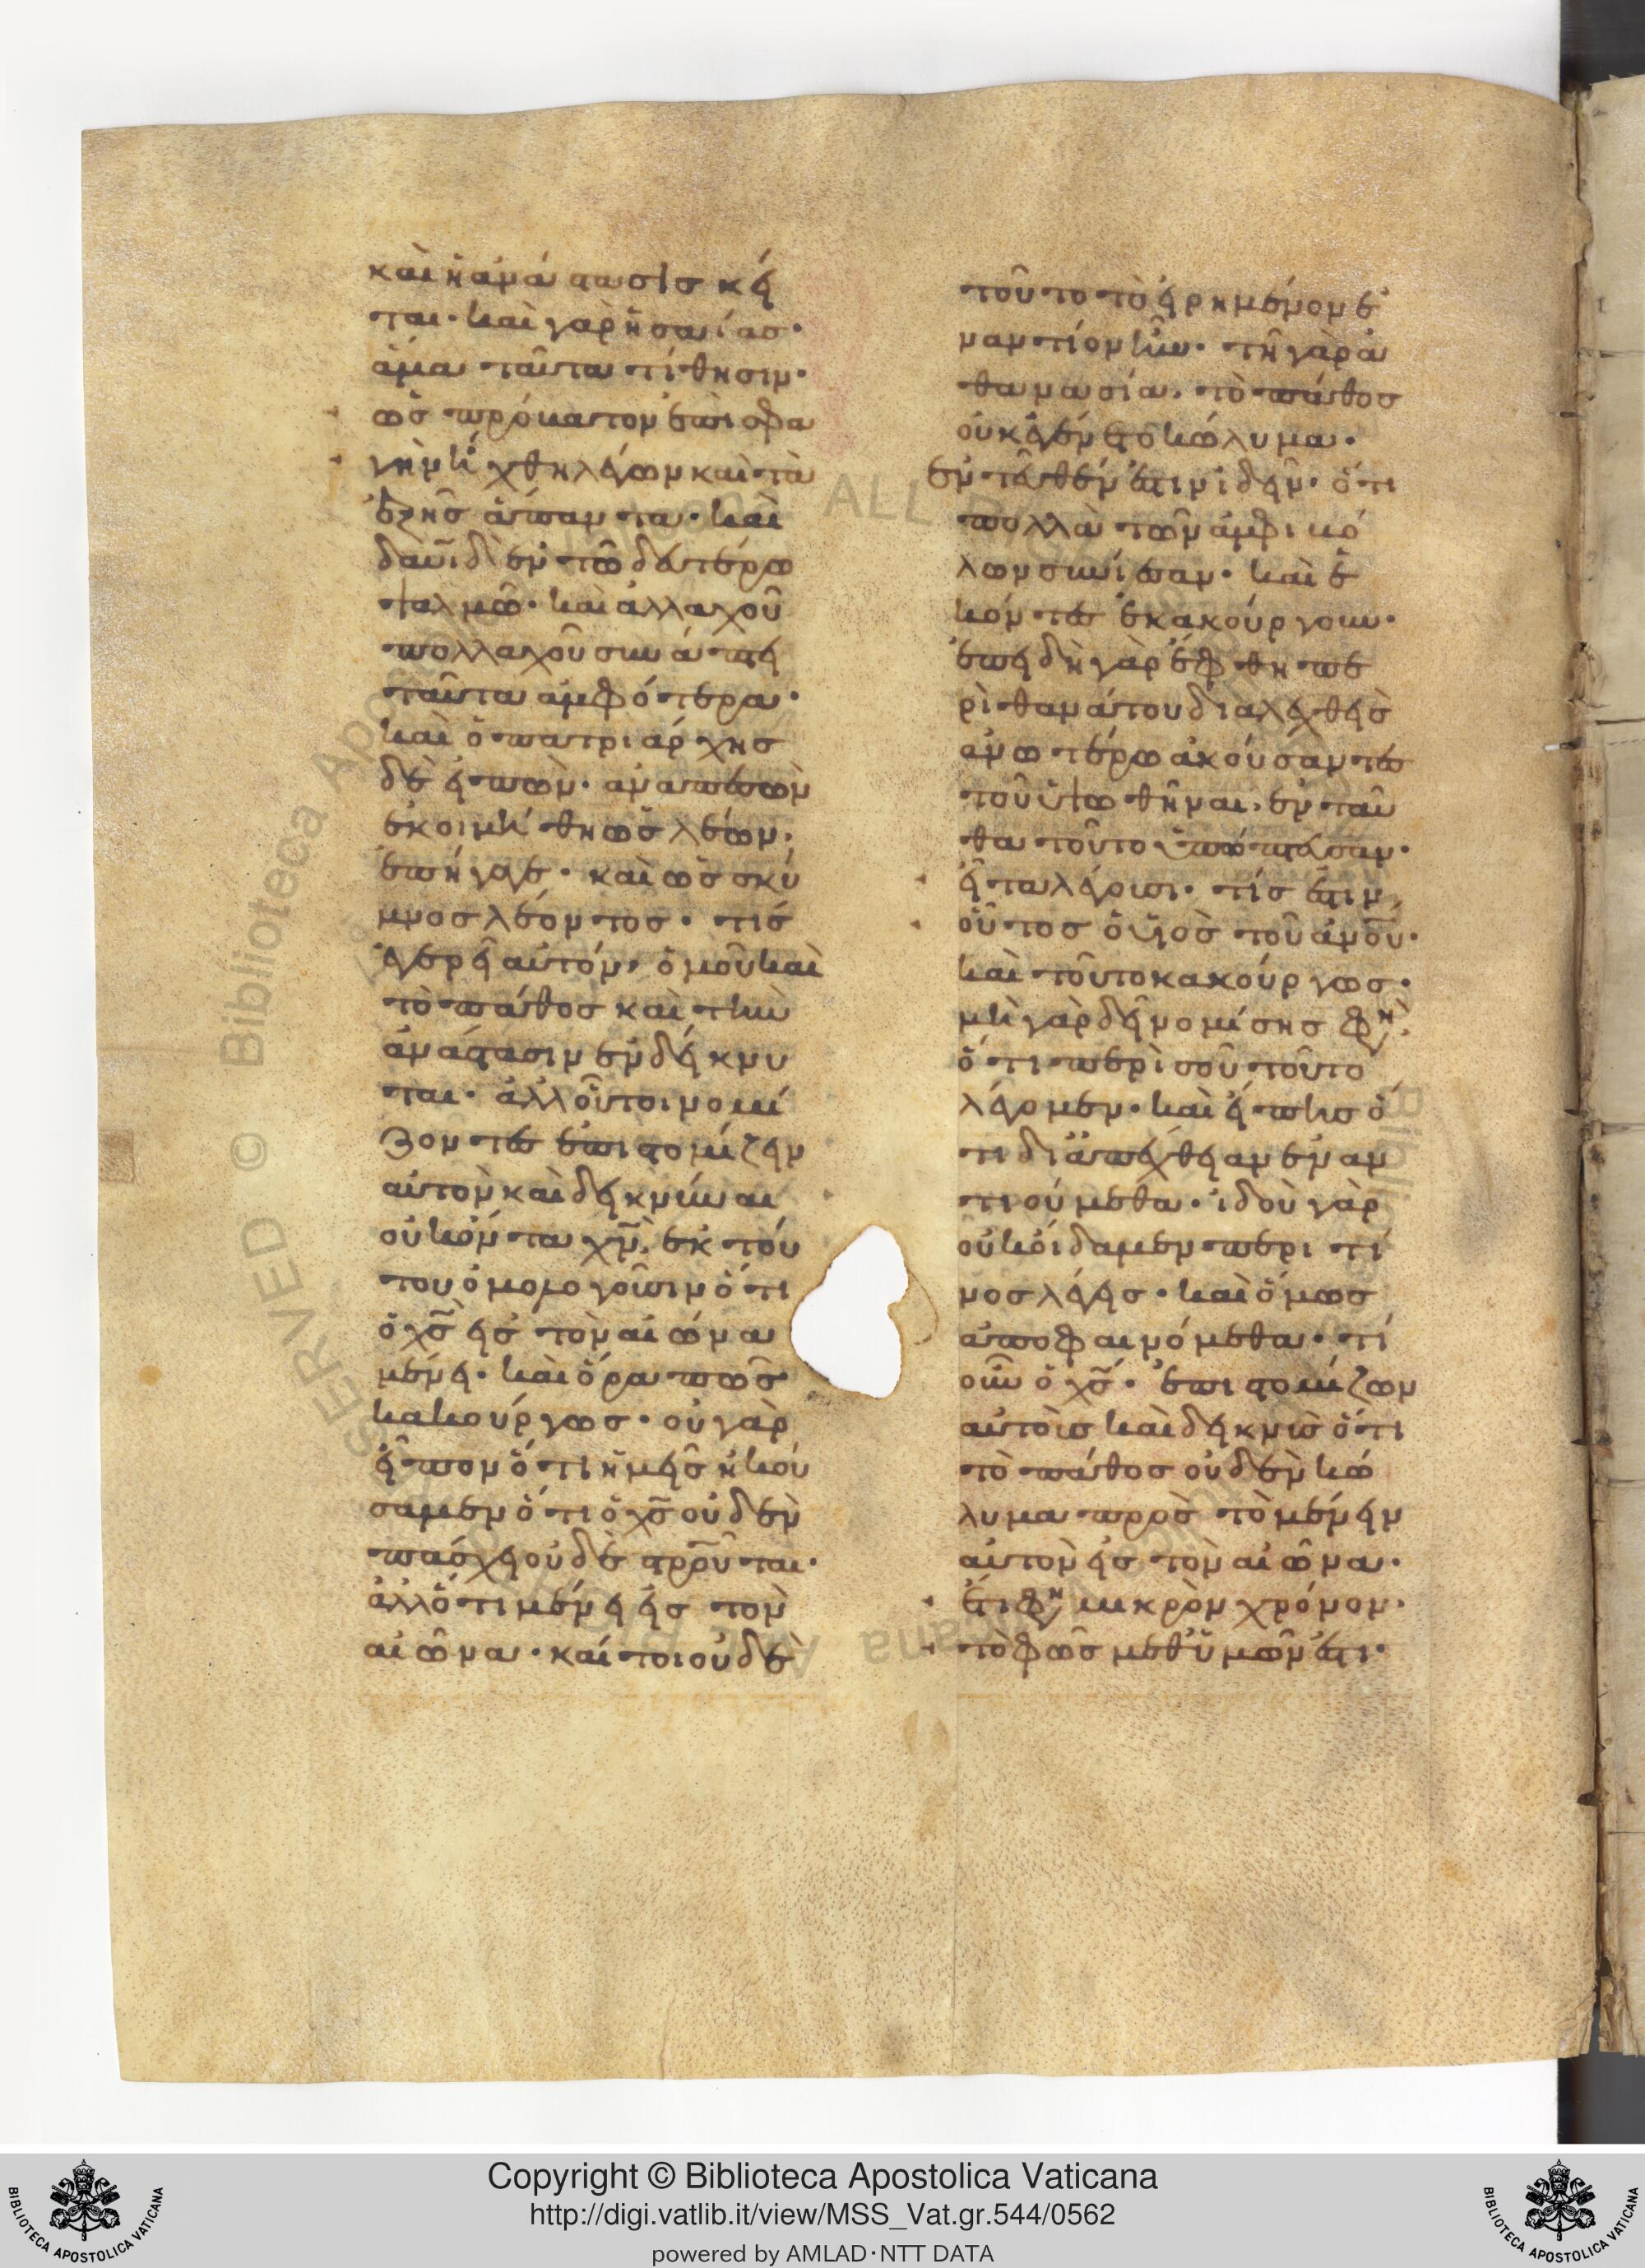 καὶ ἡ ἀνάστασις κεῖ
ται· καὶ γὰρ ἡσαΐας·
ἅμα ταῦτα τίθησιν·
ὡς πρόβατον ἐπι σφα
γὴν ἤχθη λέγων καὶ τὰ
ἑξῆς ἅπαντα· καὶ
δαυῒδ ἐν τῶ δευτέρω
ψαλμῶ· καὶ ἀλλαχοῦ
πολλαχοῦ συνάπτει
ταῦτα ἀμφότερα·
καὶ ὁ πατριάρχης
δὲ εἰπὼν· ἀναπεσὼν
ἐκοιμήθη ὡς λέων·
ἐπήγαγε· καὶ ὡς σκύ
μνος λέοντος· τίς
ἐγερεῖ αὐτόν· ὁμοῦ καὶ
τὸ πάθος καὶ τὴν
ἀνάστασιν ἐνδείκνυ
ται· ἀλλ οὗτοι νομί
ζοντες ἐπιστομίζειν
αὐτὸν καὶ δεικνύναι
οὐκ ὄντα χν̅. ἐκ τού
του ὁμολογοῦσιν ὅτι
ὁ χς̅ εἰς τὸν αἰῶνα
μένει· καὶ ὅρα πῶς
κακούργως· οὐ γὰρ
εἶπον ὅτι ἡμεῖς ἠκού
σαμεν ὅτι ὁ χς̅ οὐδὲν
πάσχει οὐδὲ στρο̅υται·
ἀλλ ὅτι μένει εἰς τὸν
αἰῶνα· καίτοι οὐδὲ
τοῦτο τὸ εἰρημένον ἐ
ναντίον ἦν· τῆ γὰρ ἀ
θανασία, τὸ πάθος
οὐκ ἐγένετο κώλυμα·
ἐντεῦθέν ἐστιν ἰδεῖν· ὅτι
πολλὰ τῶν ἀμφιβό
λων συνίεσαν· καὶ ἑ
κόντες ἐκακούργουν·
ἐπειδὴ γὰρ ἔφθη πε
ρὶ θανάτου διαλεχθεὶς
ἀνωτέρω ἀκούσαντες
τοῦ ὑψωθῆναι. ἐνταῦ
θα τοῦτο ὑπόπτευσαν·
εἶτα λέγουσι· τίς ἐστιν
οὗτος ὁ υἱὸς τοῦ ἀνο̅υ·
καὶ τοῦτο κακούργως·
μὴ γὰρ δεῖ νομίσῃς φη.
ὅτι περὶ σοῦ τοῦτο
λέγομεν· καὶ εἴπης ὅ
τι δι ἀπέχθειαν ἐναν
τιούμεθα· ἰδοὺ γὰρ
οὐκ οἴδαμεν περι τί
νος λέγεις· καὶ ὅμως
ἀποφαινόμεθα· τί
οὖν ὁ χς̅· ἐπιστομίζων
αὐτοὺς καὶ δεικνὺς ὅτι
τὸ πάθος οὐδὲν κώ
λυμα πρὸς τὸ μένειν
αὐτὸν εἰς τὸν αἰῶνα·
ἔτι φη μικρὸν χρόνον·
τὸ φῶς μεθ ὑμῶν ἐστι·
Copyright © Biblioteca Apostolica Vaticana
http://digi.vatlib.it/view/MSS_Vat.gr.544/0562
powered by AMLAD·NTT DATA
BIBLIOTECA APOSTOLICA VATICANA
BIBLIOTECA APOSTOLICA VATICANA